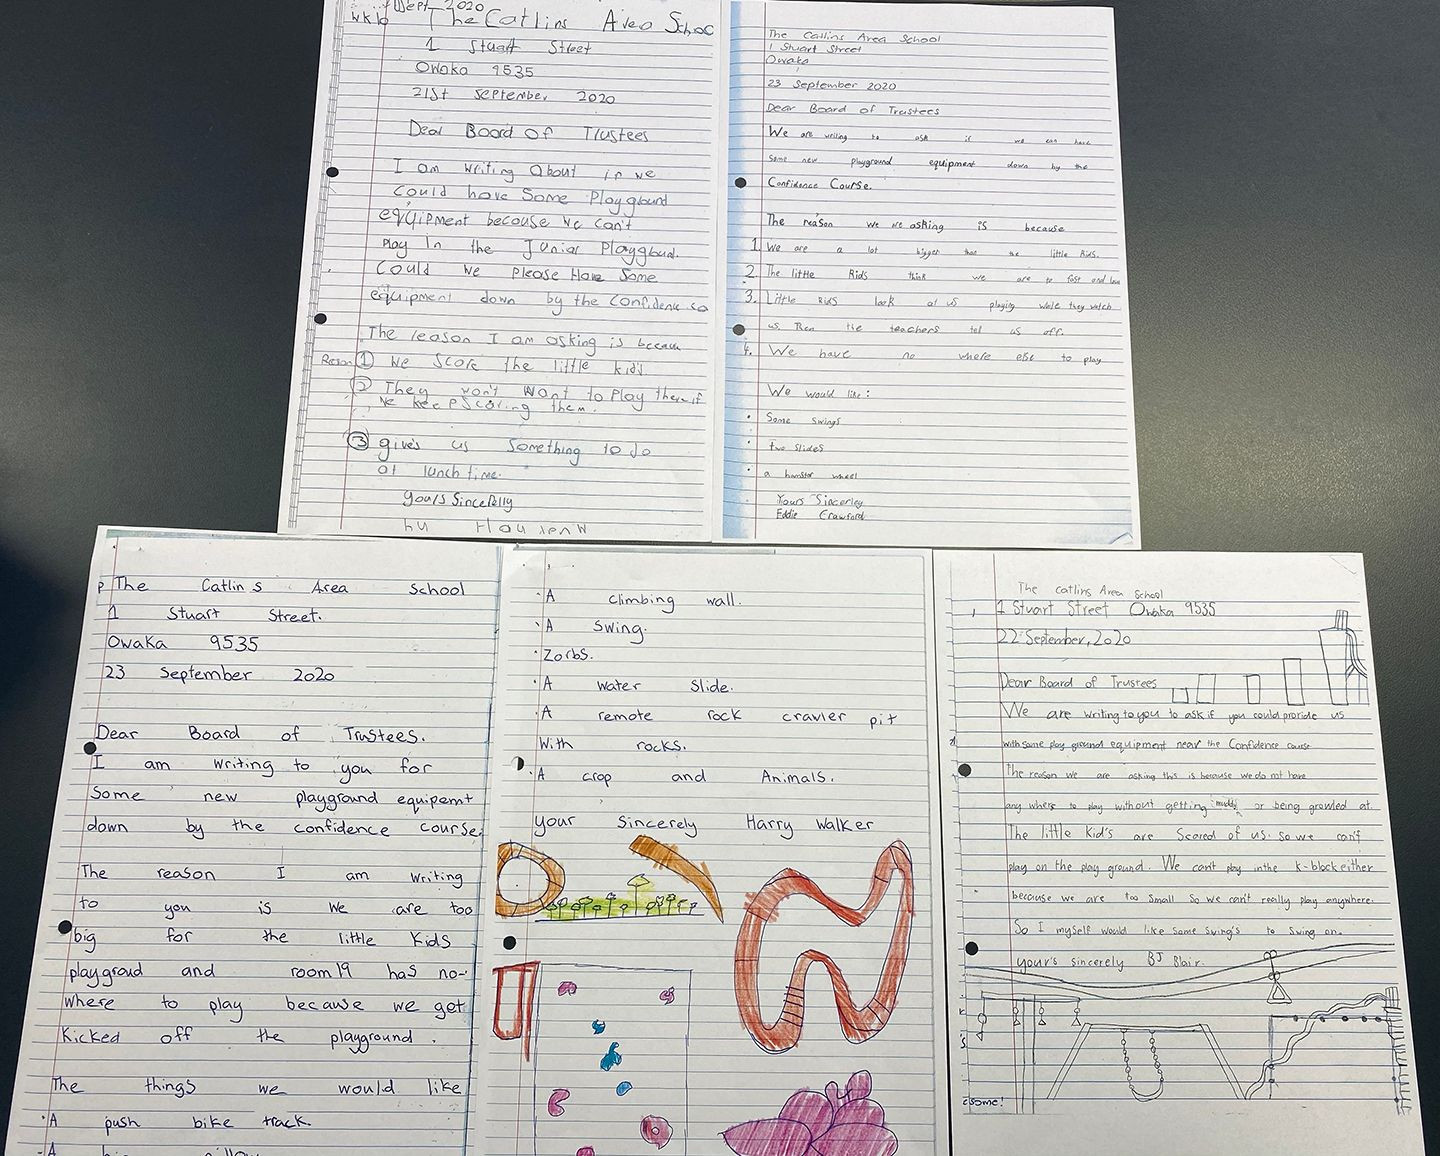 Sept 2020
wk10 The Catlins Area School
1 Stuart Street
Owaka 9535
21st September 2020
Dear Board of Trustees
I am writing about if we
could have some playground
equipment becouse we can't
play in the Junior Playgroud.
Could we please Have some
equipment down by the confidence co
The reason I am asking is becau
Reason 1 We scare the little kid's
2 They won't want to play there if
we keep scaring them.
3 gives us something to do
at lunch time.
yours sincerelly
The Catlins Area School
1 Stuart Street
Owaka
23 September 2020
Dear Board of Trustees
We are writing to ask if we can have
some new playground equipment down by the
Confidence Course.
The reason we are asking is because
1. We are a lot bigger than the little kids.
2. The little kids think we are to fast and
3. Little kids look at us playing while they watch
us. Then the teachers tell us off.
4. We have no where else to play
We would like:
• Some swings
• two slides
• a hamster wheel
Yours Sincerley
Eddie Crawford
The Catlins Area School
1 Stuart Street.
Owaka 9535
23 September 2020
Dear Board of Trustees.
I am writing to you for
Some new playground equipemt
down by the confidence course.
The reason I am writing
to you is we are too
big for the little kids
playgroud and room 19 has no-
where to play because we get
kicked off the playground.
The things we would like
• A push bike track.
- A
• A climbing wall.
• A swing.
• Zorbs.
• A water slide.
• A remote rock crawler pit
With rocks.
• A crop and Animals.
your sincerely Harry Walker
The catlins Area School
1 Stuart Street Owaka 9535
22 September, 2020
Dear Board of Trustees
We are writing to you to ask if you could provide us
with some play ground equipment near the Confidence course
The reason we are asking this is because we do not have
any where to play without getting muddy or being growled at.
The little kid's are scared of us. so we can't
play on the play ground. We can't play in the k-block either
because we are too small so we can't really play anywhere.
So I myself would like some swing's to swing on.
your's sincerely BJ Blair.
some!